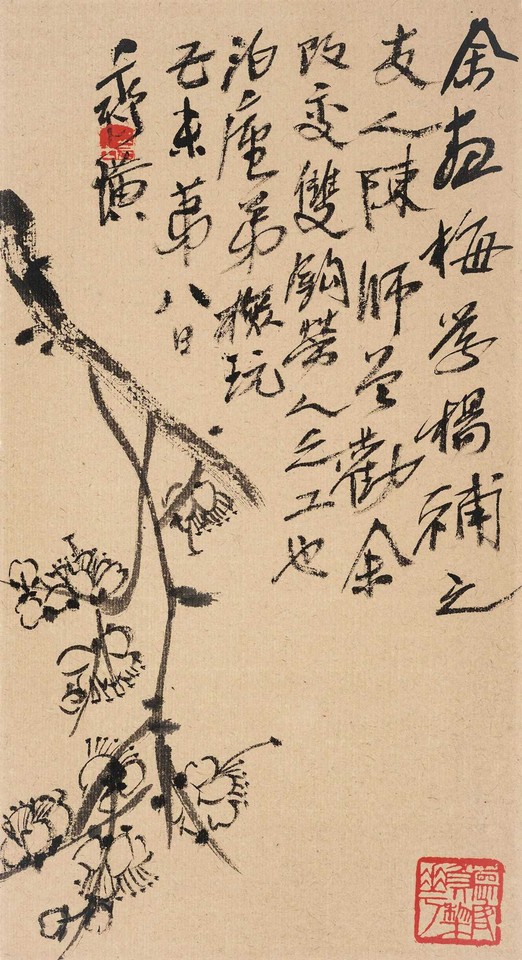 余畫梅學楊補之
友人陳師曾勸余
改變雙鉤勞人之工也
泊廬弟玩
己未第八日
齊璜